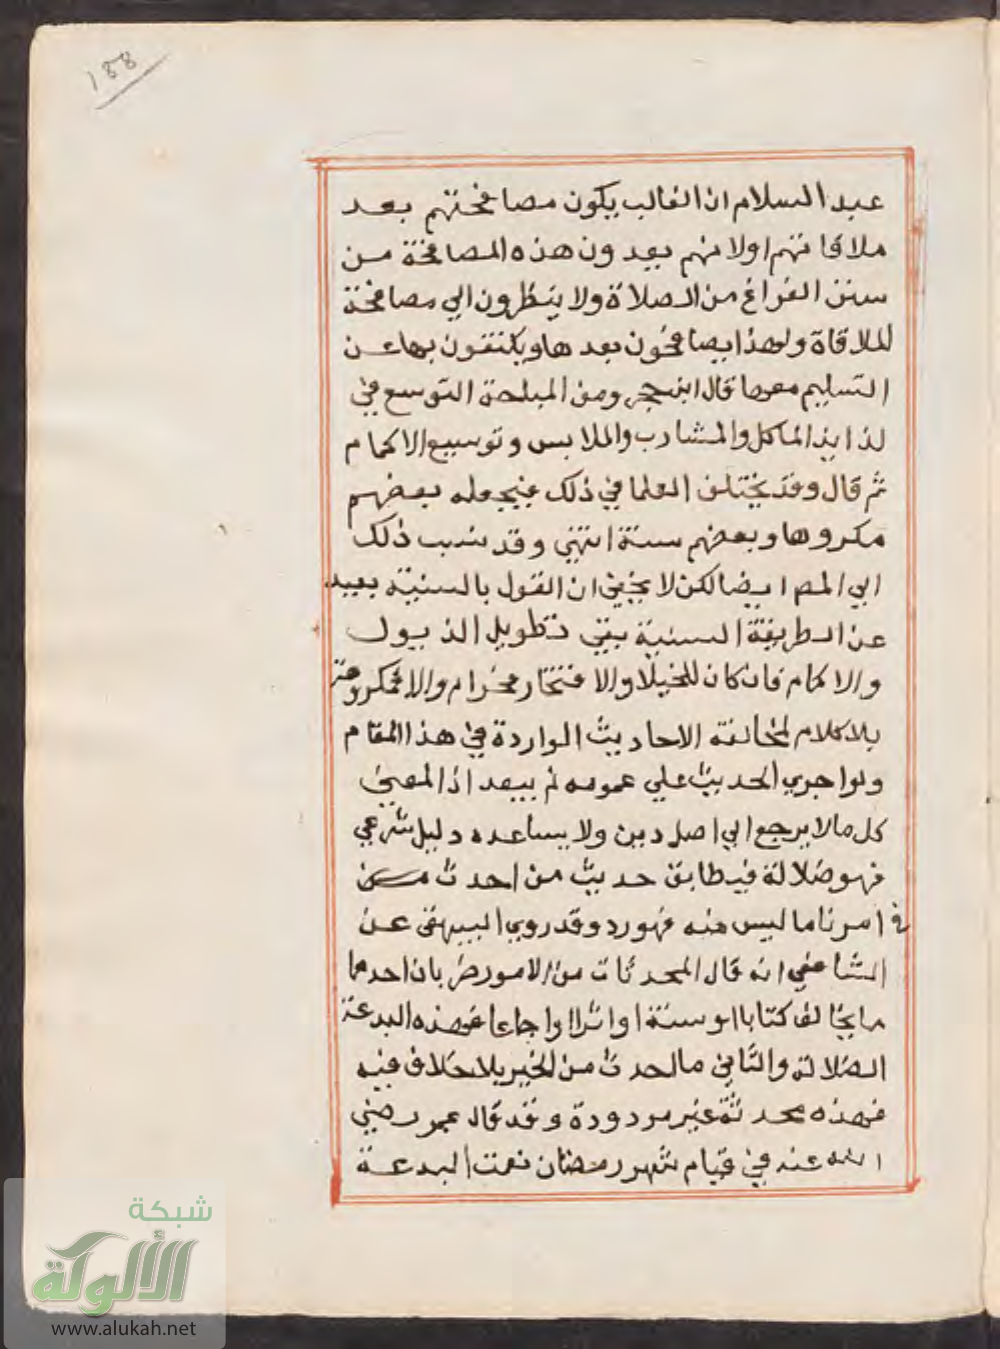 188
عبد السلام ان الغالب يكون مصافحتهم بعد
ملاقاتهم اولانهم يعدون هذه المصافحة من
سنن الفراغ من الصلاة ولا ينظرون الي مصافحة
للملاقاة ولهذا يصافحون بعدها ويكتفون بها عن
التسليم معها قال ابن حجر ومن المباحة التوسع في
لذايذ الماكل والمشارب والملابس وتوسيع الاكمام
ثم قال وقد يختلف العلما في ذلك فيجعله بعضهم
مكروها وبعضهم سنة انتهي وقد نسب ذلك
الي المص ايضا لكن لا يخفي ان القول بالسنية بعيد
عن الطريقة السنية بقي تطويل الذيول
والاكمام فان كان للخيلا والافتخار فحرام والا فمكروهة
بلا كلام لمخالفة الاحاديث الواردة في هذا المقام
ولو اجري الحديث علي عمومه لم يبعد اذ المعني
كل مالا يرجع الي اصل دين ولا يساعده دليل شرعي
فهو ضلالة فيطابق حديث من احدث
في امرنا ما ليس منه فهو رد وقد روي البيهقي عن
الشافعي انه قال المحدثات من الامور ضربان احدهما
ما يخالف كتابا او سنة او اثرا او اجماعا فهذه البدعة
الضلالة والثاني ما احدث من الخير بلا خلاف فيه
فهذه محدثة غير مردودة وقد قال عمر رضي
الله عنه في قيام شهر رمضان نعمت البدعة
شبكة
الألوكة
www.alukah.net